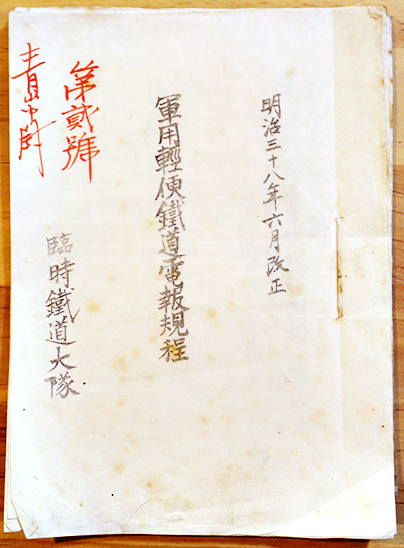 明治三十八年六月改正
軍用輕便鐵道電報規程
臨時鐵道大隊
第貳號